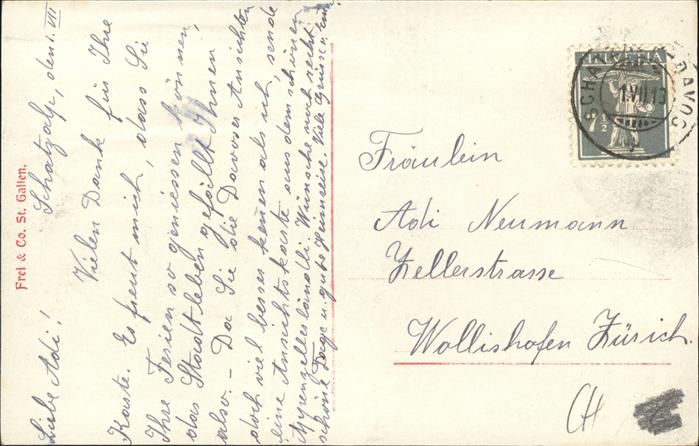 Schatzalp, den 1. VII
Liebe Adi!
Vielen Dank für Ihre
Karte. Es freut mich, dass Sie
Ihre Ferien so geniessen können,
das Stadtleben gefällt Ihnen
also. – Da Sie die Davoser Ansichten
doch viel besser kennen als ich, sende
eine Ansichtskarte aus dem schönen
Wünsche noch recht
schöne Tage u. gute Heimreise. Viele Grüsse v.
Frei & Co. St. Gallen.
HELVETIA
7½
SCHATZALP (DAVOS)
1.VII.13
Fräulein
Adi Neumann
Zellerstrasse
Wollishofen Zürich.
CH